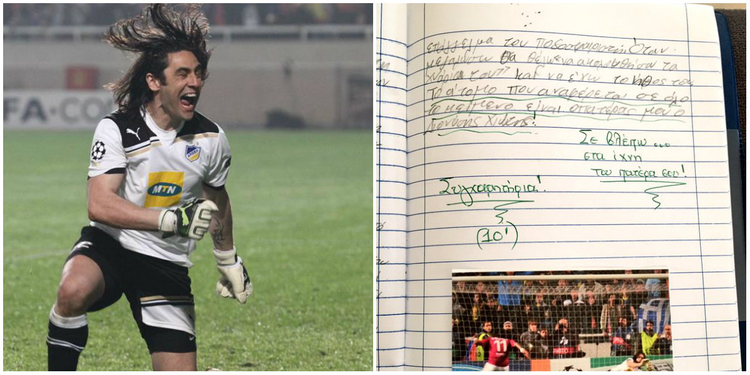 FA.COM
MTN
επάγγελμα του ποδοσφαιριστή. Όταν
μεγαλώσω θα ήθελα να ακολουθήσω τα
χνάρια του και να έχω το ήθος του
Το άτομο που αναφέρεται σε όλο
το κείμενο είναι ο πατέρας μου ο
Διονύσης Χιώτης!
Σε βλέπω...
στα ίχνη
του πατέρα σου!
Συγχαρητήρια!
(10')
11